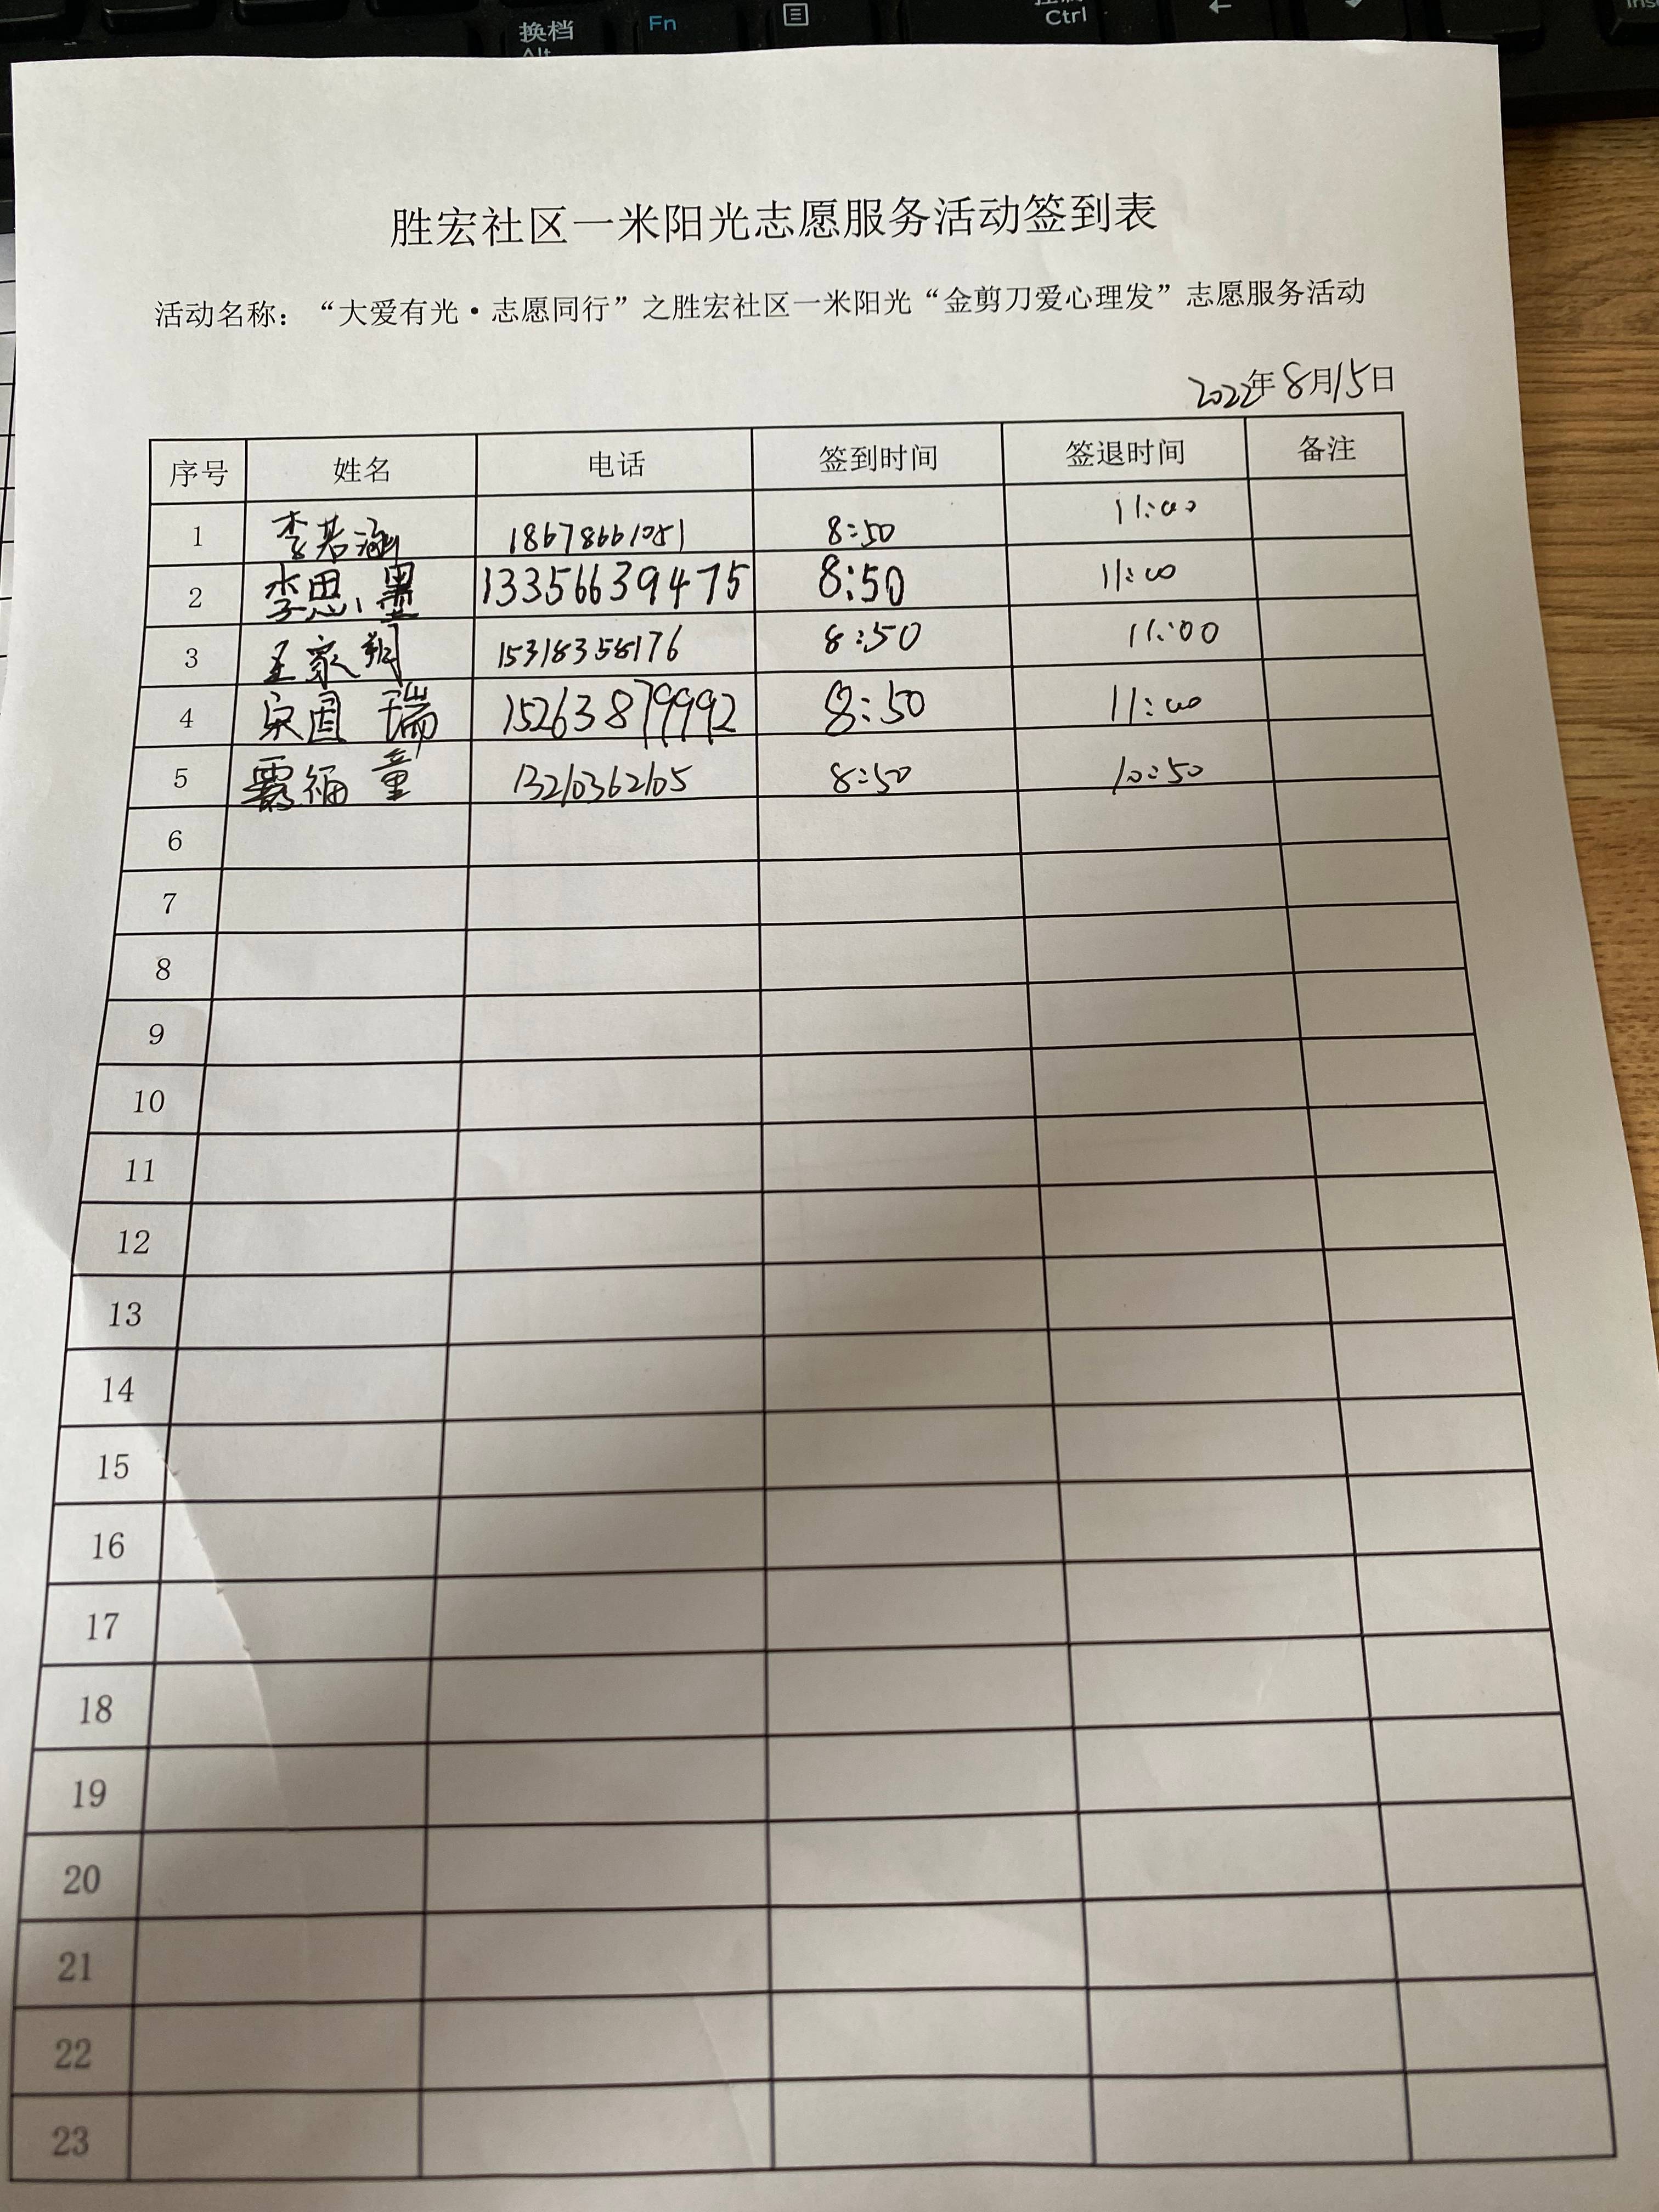 换档
Alt
Fn
Ctrl
Ins
胜宏社区一米阳光志愿服务活动签到表
活动名称：“大爱有光·志愿同行”之胜宏社区一米阳光“金剪刀爱心理发”志愿服务活动
2022年8月15日
序号 姓名 电话 签到时间 签退时间 备注
1 李若涵 18678661051 8:50 11:00
2 李思墨 13356639475 8:50 11:00
3 王家朔 15318358176 8:50 11:00
4 宋国瑞 15263879992 8:50 11:00
5 福童 13210362105 8:50 10:50
6
7
8
9
10
11
12
13
14
15
16
17
18
19
20
21
22
23